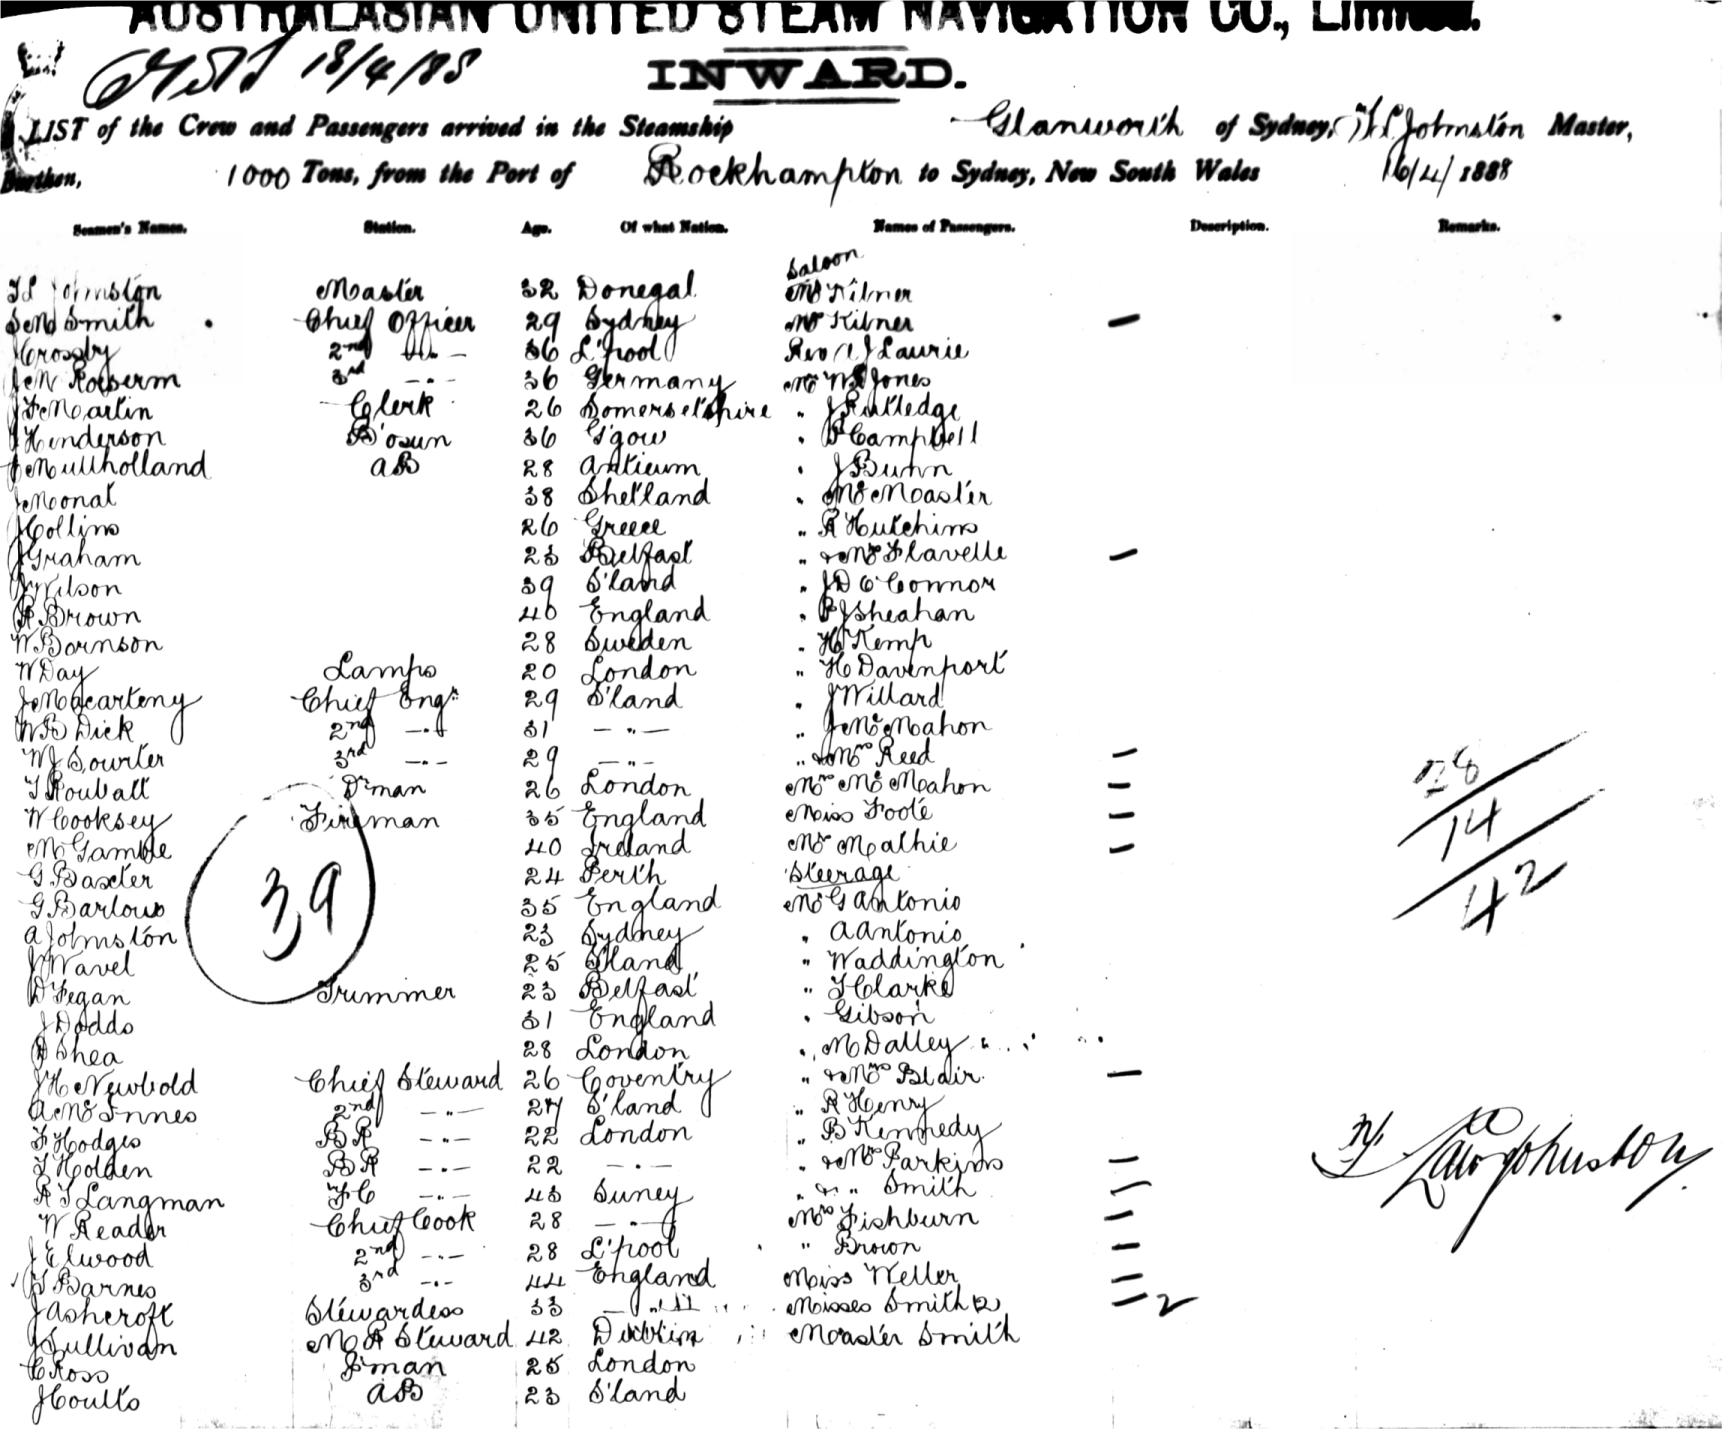 AUSTRALASIAN UNITED STEAM NAVIGATION CO., Limited.
18/4/88
INWARD.
LIST of the Crew and Passengers arrived in the Steamship Glanworth of Sydney, Johnston Master,
Burthen, 1000 Tons, from the Port of Rockhampton to Sydney, New South Wales 16/4/1888
Seamen's Names. Station. Age. Of what Nation. Names of Passengers. Description. Remarks.
Saloon
Johnston Master 32 Donegal Mr Kilner
Smith Chief Officer 29 Sydney Mrs Kilner —
J Crosby 2nd -"- 36 L'pool Rev J Laurie
3rd -"- 36 Germany Mr Jones
J F Martin Clerk 26 Somersetshire " J Rutledge
J Henderson B'osun 36 G'gow " Campbell
J Mullholland AB 28 Antieum " J Bunn
J Monat 38 Shetland " McMaster
J Collins 26 Greece " R Hutchins
J Graham 23 Belfast " & Mrs Flavelle —
J Wilson 39 S'land " J D O'Connor
R Brown 40 England " P J Sheahan
W Bornson 28 Sweden " H Kemp
W Day Lamps 20 London " H Davenport
J Macarteny Chief Engr 29 S'land " J Willard
W B Dick 2nd -"- 31 -"- " J McMahon
W J Sourter 3rd -"- 29 -"- " & Mrs Reed —
D'man 26 London Mrs McMahon —
W Cooksey Fireman 35 England Miss Foote —
M Gamble 40 Ireland Mrs Mathie —
G Baxter 24 Perth Steerage
G Barlow 35 England Mr G Antonio
A Johnston 23 Sydney " A Antonio
J Wavel 25 S'land " Waddington
D Fegan Trimmer 23 Belfast " T Clarke
J Dodds 31 England " Gibson
Shea 28 London " M Dalley
J H Newbold Chief Steward 26 Coventry " & Mrs Blair —
A McInnes 2nd -"- 27 S'land " R Henry
F Hodges BR -"- 22 London " B Kennedy
T Holden BR -"- 22 -"- " & Mrs Parkins —
R T Langman FC -"- 43 Surrey " & " Smith —
W Reader Chief Cook 28 -"- Mrs Fishburn —
J Elwood 2nd -"- 28 L'pool " Brown —
T Barnes 3rd -"- 44 England Miss Weller —
J Ashcroft Stewardess 33 -"- Misses Smith 2 — 2
J Sullivan M R Steward 42 Dublin Master Smith
C Ross F'man 25 London
J Coults AB 23 S'land
39
28
14
42
Johnston